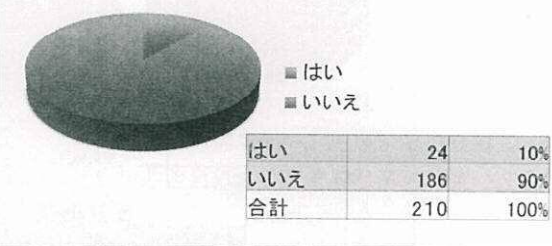 はい
いいえ
はい 24 10%
いいえ 186 90%
合計 210 100%